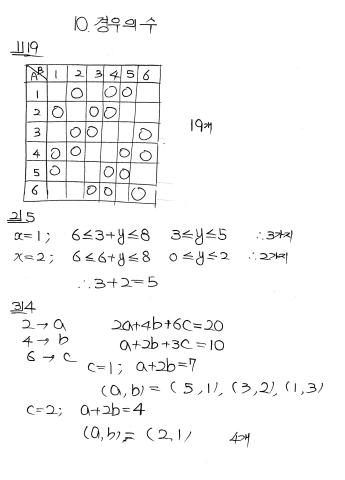 10. 경우의 수
1) 19
A B 1 2 3 4 5 6
1 O O O
2 O O O
3 O O O
4 O O O O
5 O O O
6 O O O
19개
2) 5
x=1; 6≤3+y≤8 3≤y≤5 ∴3가지
x=2; 6≤6+y≤8 0≤y≤2 ∴2가지
∴3+2=5
3) 4
2→a 2a+4b+6c=20
4→b a+2b+3c=10
6→c
c=1; a+2b=7
(a,b) = (5,1), (3,2), (1,3)
c=2; a+2b=4
(a,b) = (2,1) 4개